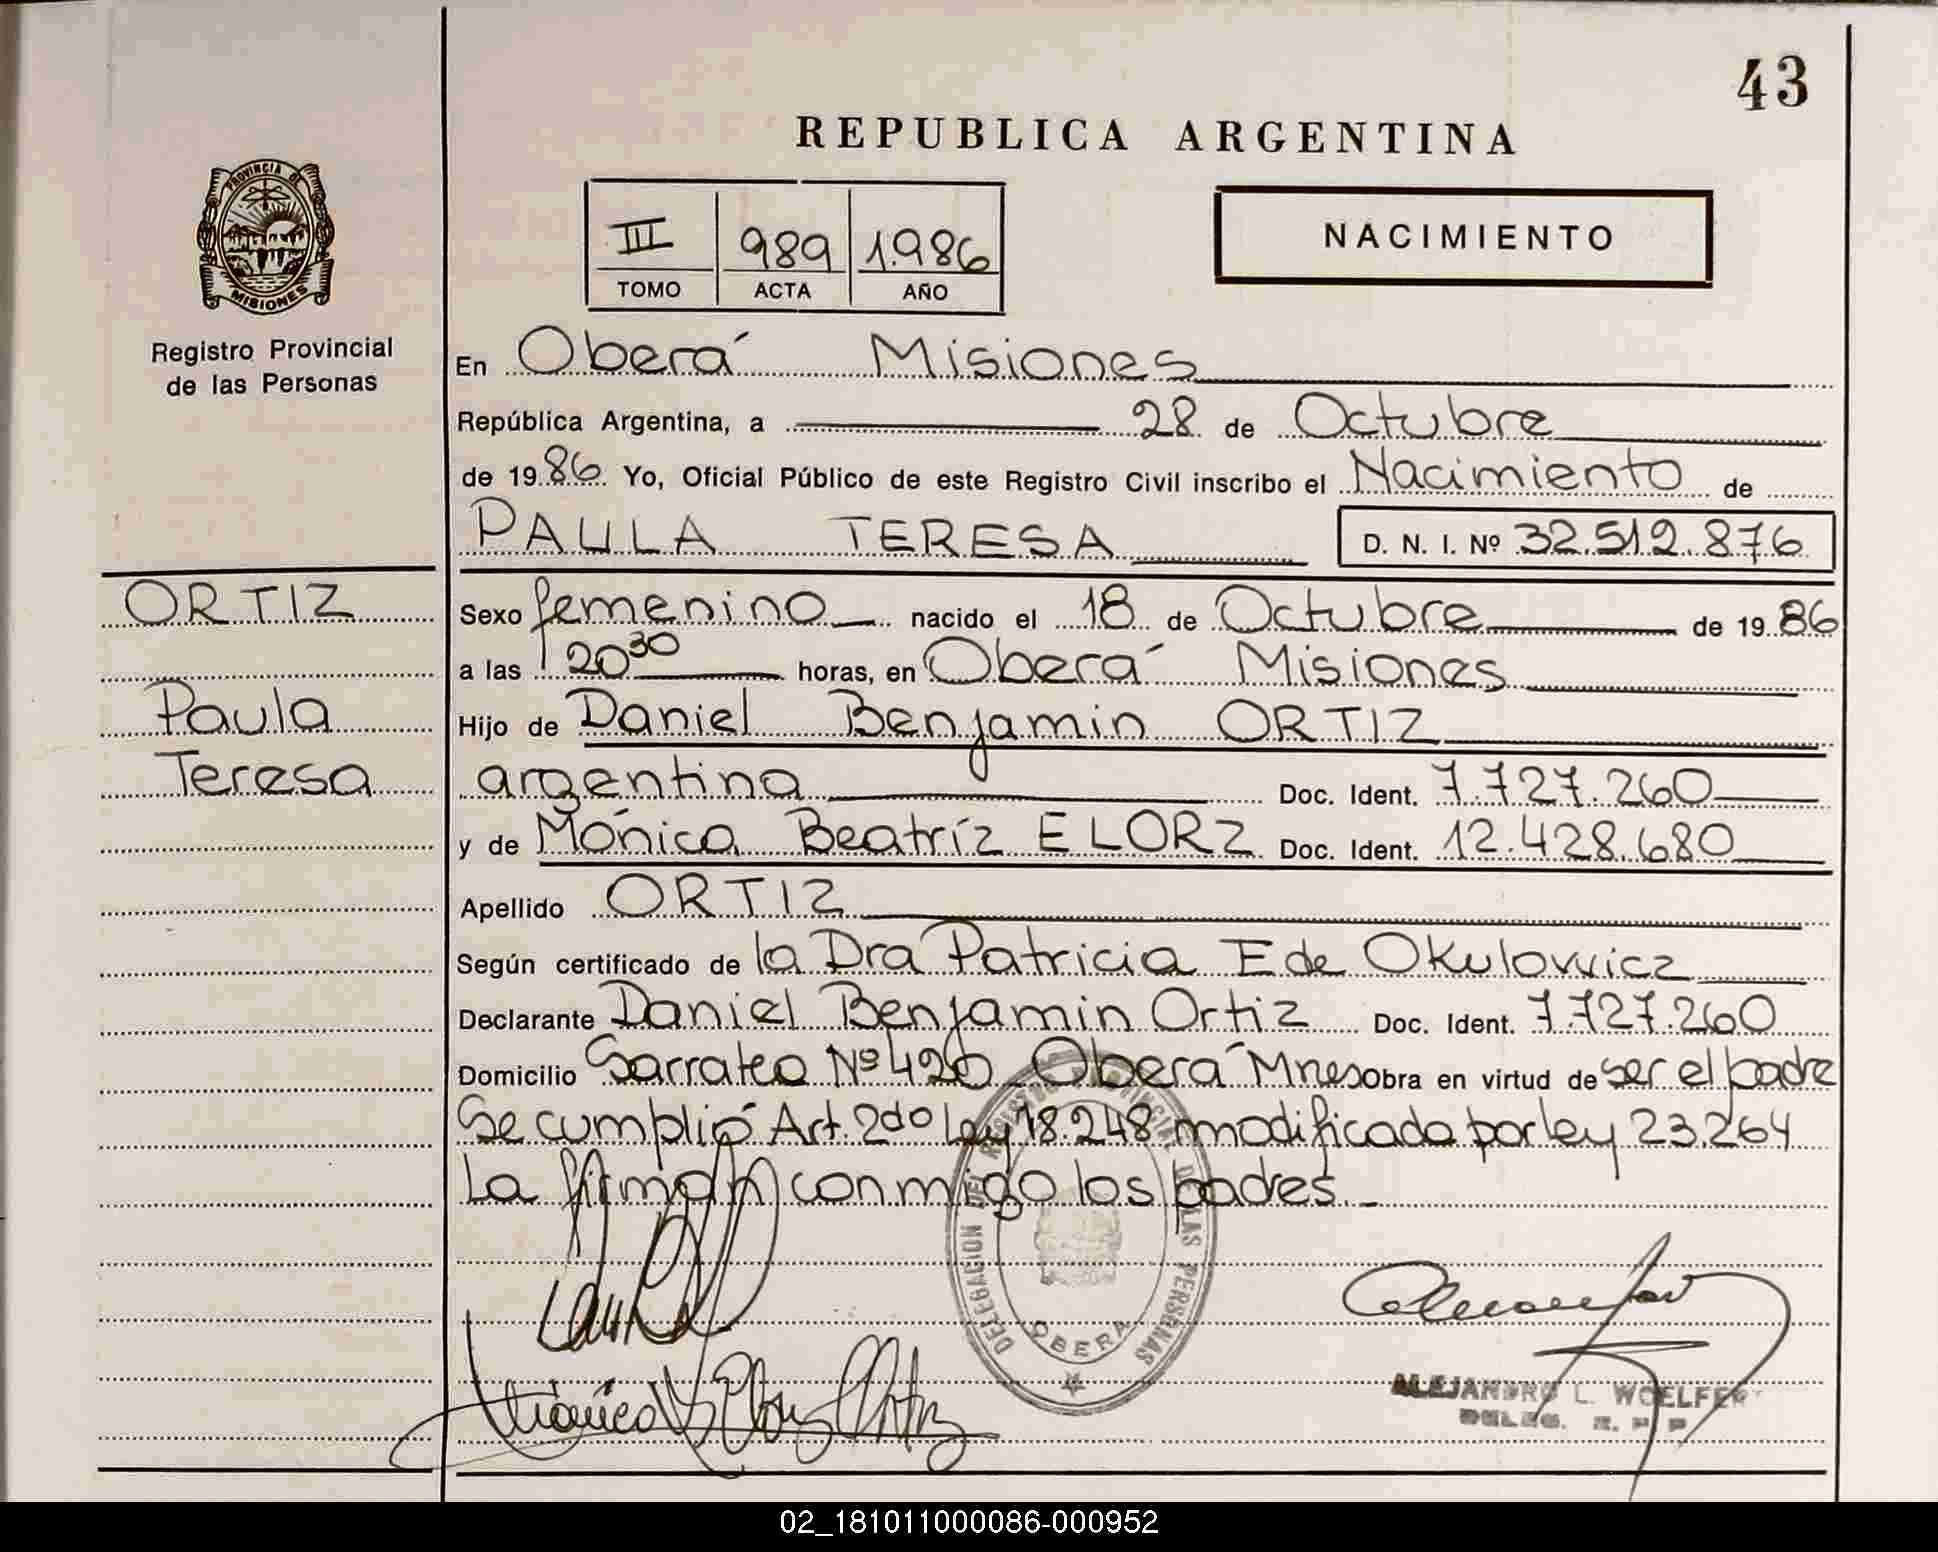 43
REPUBLICA ARGENTINA
PROVINCIA DE
MISIONES
Registro Provincial
de las Personas
III 989 1.986
TOMO ACTA AÑO
NACIMIENTO
En Oberá Misiones
República Argentina, a 28 de Octubre
de 1986 Yo, Oficial Público de este Registro Civil inscribo el Nacimiento de
PAULA TERESA D. N. I. Nº 32.512.876
ORTIZ
Paula
Teresa
Sexo femenino nacido el 18 de Octubre de 1986
a las 20 30 horas, en Oberá Misiones
Hijo de Daniel Benjamin ORTIZ
argentina Doc. Ident. 7.727.260
y de Mónica Beatríz ELORZ Doc. Ident. 12.428.680
Apellido ORTIZ
Según certificado de la Dra Patricia E de Okulovvicz
Declarante Daniel Benjamin Ortiz Doc. Ident. 7.727.260
Domicilio Sarratea Nº 420 Oberá Mnes Obra en virtud de ser el padre
Se cumplió Art. 2do Ley 18.248 modificada por ley 23.264
La firman conmigo los padres._
DELEGACION DEL REGISTRO PROVINCIAL DE LAS PERSONAS
OBERA
ALEJANDRO L. WOELFER
DELEG. R. P. P
02_181011000086-000952